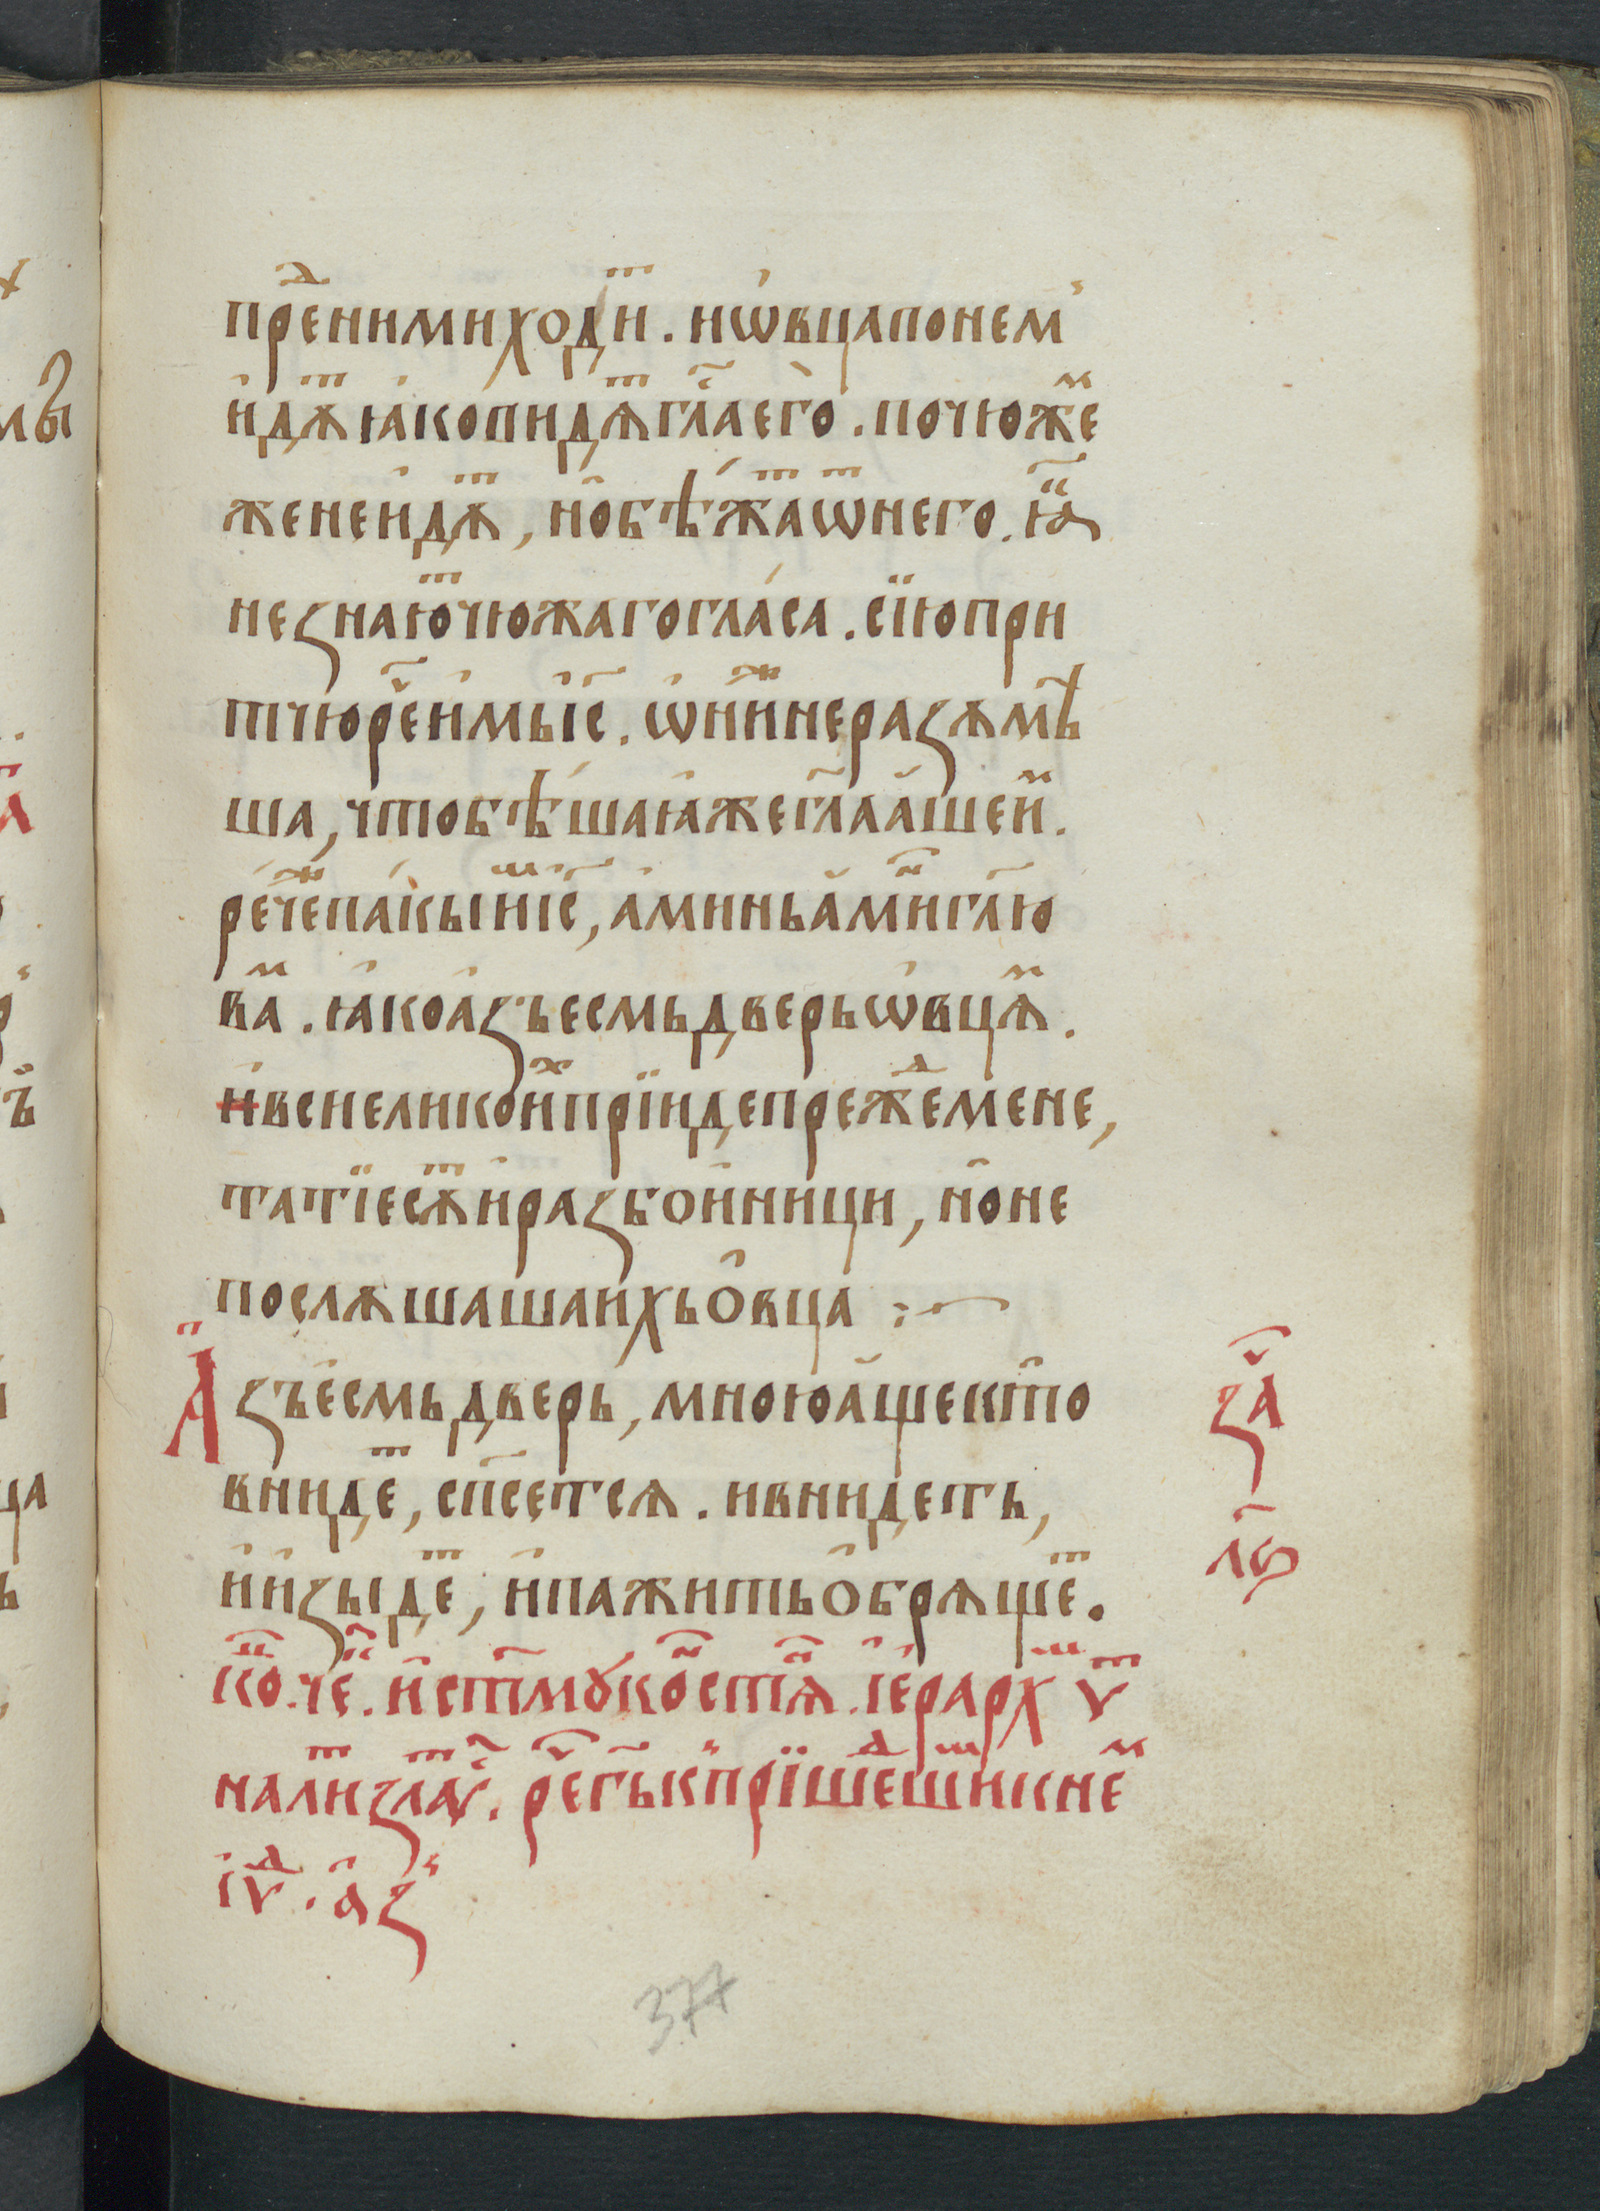 прⷣенимиходиⷮ. иѡ҆вцапонем҆
и҆дѫⷮꙗ҆коⷪ҇видѧⷮгл҃аего̀. почюжеⷨ
женеи҆дѫⷮ, ноб̑ѣжаⷮѿнего. ꙗ҆ⷦ҇
незнаюⷮчюжагогла́са. сїюпри
тчюрⷱ҇еи҆мъі҆с҃. ѡ҆ниⷤнеразѫмѣ̑
ша, чтобѣ́шаꙗ҆жегл҃аа҆шеиⷨ.
ре́чеⷤпа́кыиⷨі҆с҃, а҆миньа҆миⷩ҇гл҃ю
ваⷨ. ꙗ҆коа҆зъесмьдверьѡ҆вцѧⷨ.
и҆всиеликоиⷯпрїидепреⷤⷣемене,
татїесѫⷮи҆разбои҆ници, но҆не
послѫшашаи҆хьо҆вца :~
А҆зъе҆смьдверь, мноюа҆щектⷪ҇
внидеⷮ, сп҃сетсѧ. ивнидеть,
и҆и҆зыдеⷮ, и҆пажитьо҆брѧщеⷮ.
коⷩ҇.чеⷦ҇. и҆ст҃мꙋкоⷩ҇стⷩ҇ѧ. і҆єрарⷯ ѵⷮ
налиⷮзлаⷮѵ. рⷱ҇егь҃кⸯпрїшеⷣшиⷨкнеⷨ
іѵⷣ. а҆зⸯ
заⷱ҇
лѕ҃
377